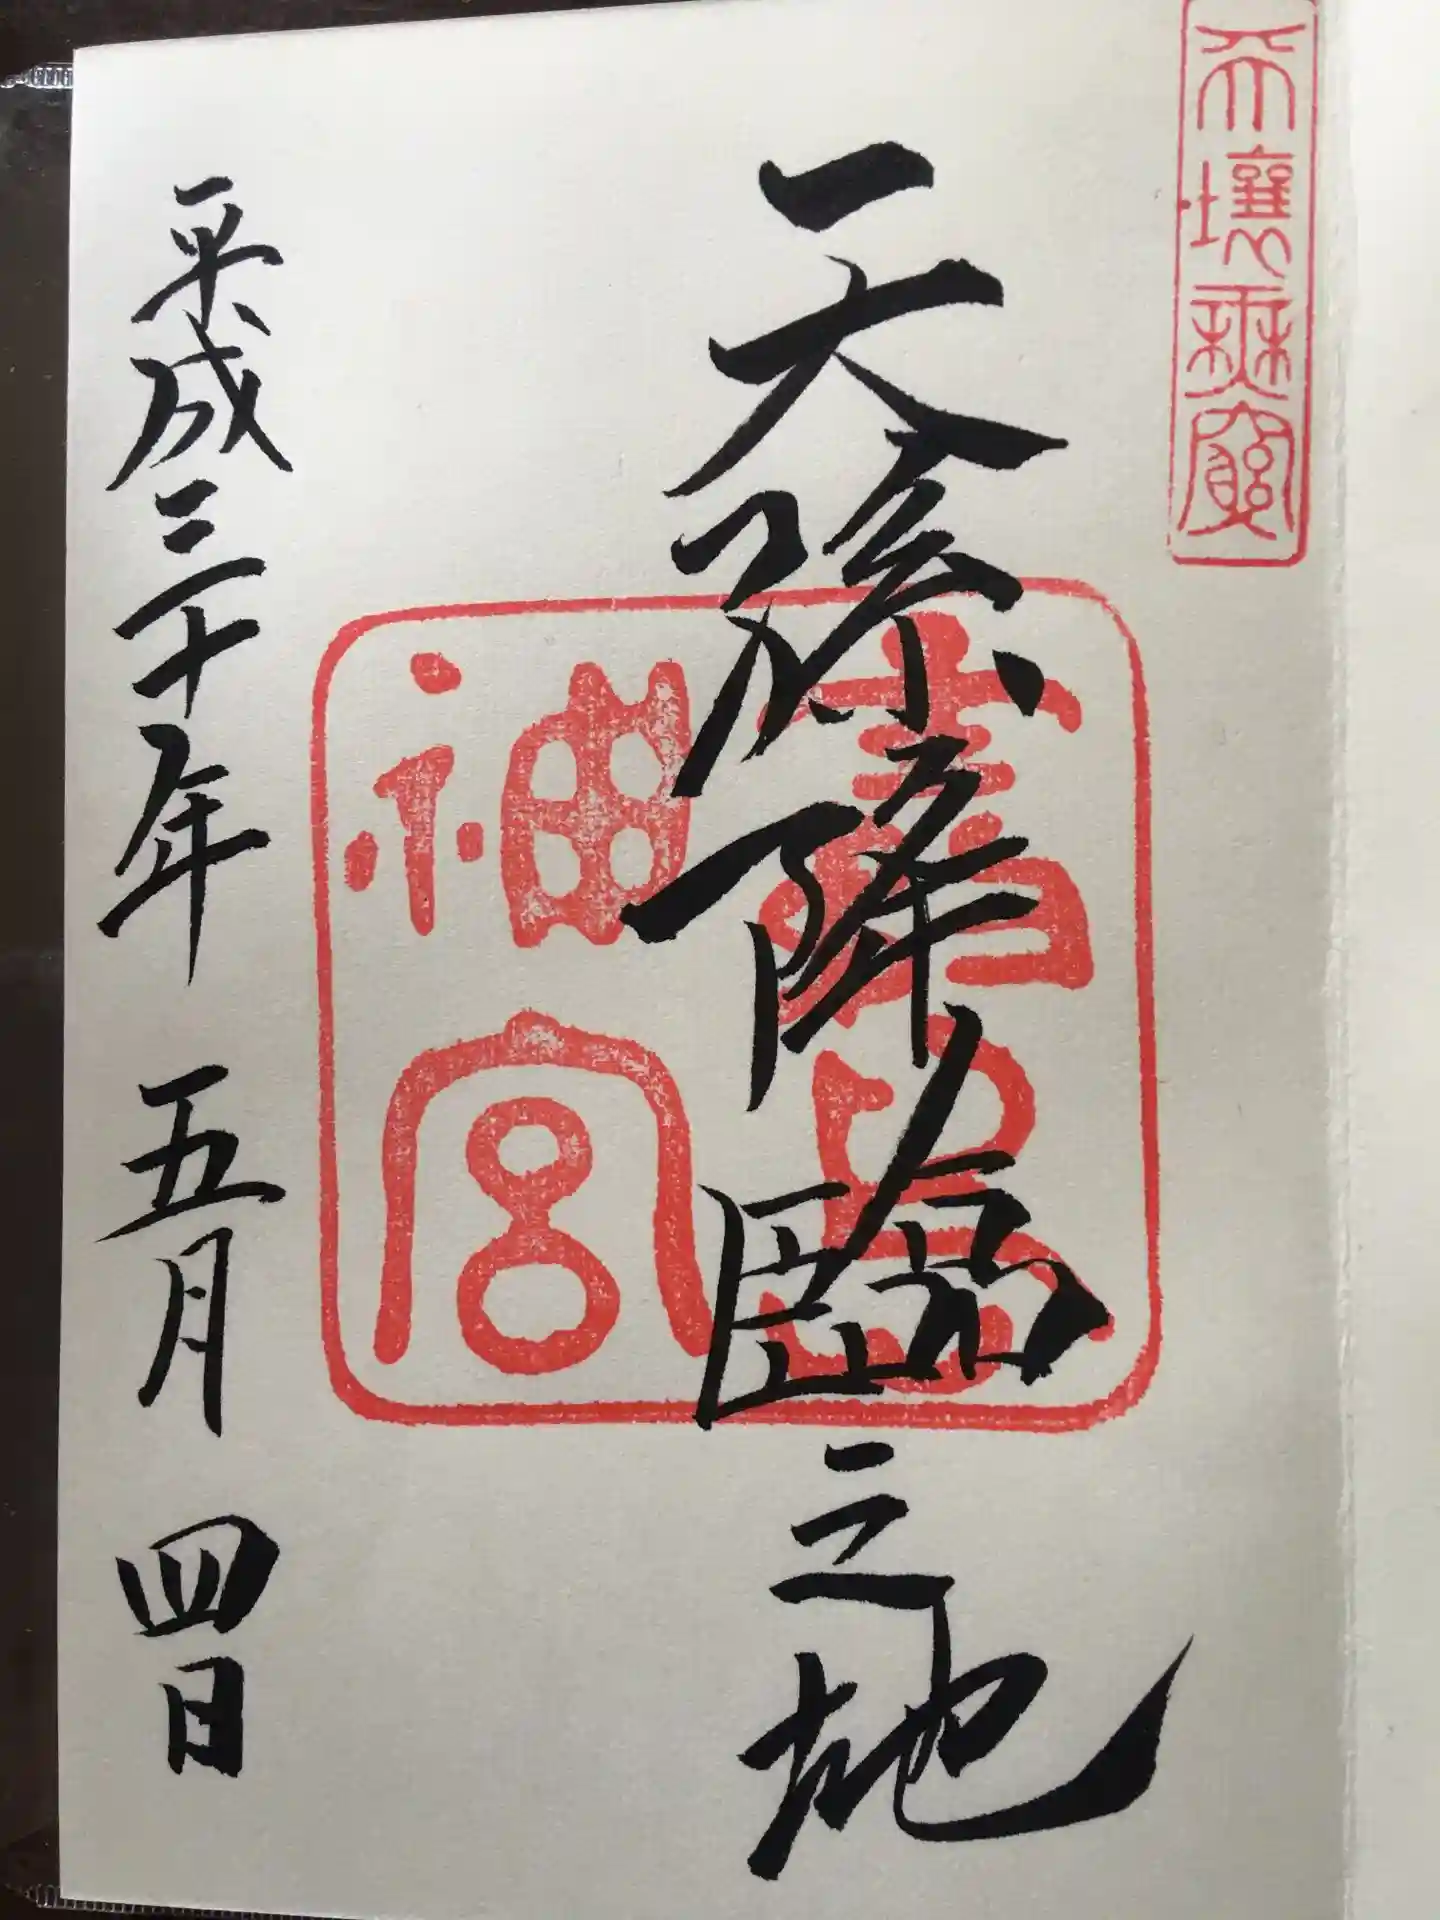 天壤無窮
天孫降臨之地
霧島
神宮
平成三十年 五月 四日